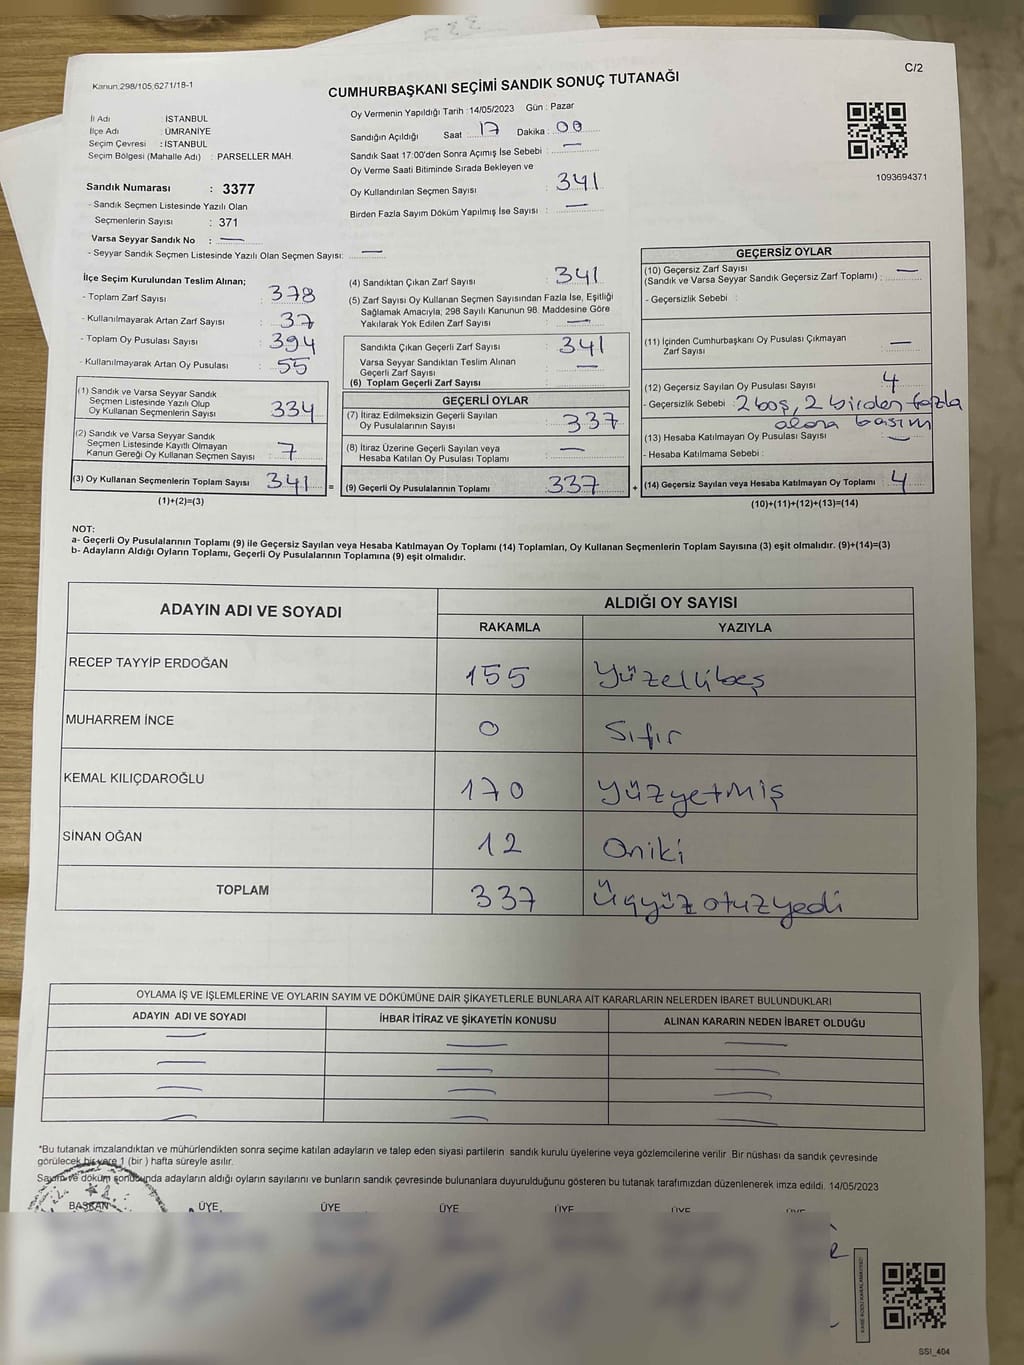 Kanun:298/105,6271/18-1
C/2
CUMHURBAŞKANI SEÇİMİ SANDIK SONUÇ TUTANAĞI
İl Adı : İSTANBUL
İlçe Adı : ÜMRANİYE
Seçim Çevresi : İSTANBUL
Seçim Bölgesi (Mahalle Adı) : PARSELLER MAH.
Sandık Numarası : 3377
- Sandık Seçmen Listesinde Yazılı Olan
Seçmenlerin Sayısı : 371
Varsa Seyyar Sandık No : —
- Seyyar Sandık Seçmen Listesinde Yazılı Olan Seçmen Sayısı: —
Oy Vermenin Yapıldığı Tarih :14/05/2023 Gün : Pazar
Sandığın Açıldığı Saat 17 Dakika : 00
Sandık Saat 17:00'den Sonra Açımış İse Sebebi : —
Oy Verme Saati Bitiminde Sırada Bekleyen ve
Oy Kullandırılan Seçmen Sayısı : 341
Birden Fazla Sayım Döküm Yapılmış İse Sayısı : —
1093694371
İlçe Seçim Kurulundan Teslim Alınan;
- Toplam Zarf Sayısı : 378
- Kullanılmayarak Artan Zarf Sayısı : 37
- Toplam Oy Pusulası Sayısı : 394
- Kullanılmayarak Artan Oy Pusulası : 55
(1) Sandık ve Varsa Seyyar Sandık
Seçmen Listesinde Yazılı Olup
Oy Kullanan Seçmenlerin Sayısı : 334
(2) Sandık ve Varsa Seyyar Sandık
Seçmen Listesinde Kayıtlı Olmayan
Kanun Gereği Oy Kullanan Seçmen Sayısı : 7
(3) Oy Kullanan Seçmenlerin Toplam Sayısı 341 =
(1)+(2)=(3)
(4) Sandıktan Çıkan Zarf Sayısı : 341
(5) Zarf Sayısı Oy Kullanan Seçmen Sayısından Fazla İse, Eşitliği
Sağlamak Amacıyla, 298 Sayılı Kanunun 98. Maddesine Göre
Yakılarak Yok Edilen Zarf Sayısı : —
Sandıkta Çıkan Geçerli Zarf Sayısı : 341
Varsa Seyyar Sandıktan Teslim Alınan
Geçerli Zarf Sayısı : —
(6) Toplam Geçerli Zarf Sayısı :
GEÇERLİ OYLAR
(7) İtiraz Edilmeksizin Geçerli Sayılan
Oy Pusulalarının Sayısı : 337
(8) İtiraz Üzerine Geçerli Sayılan veya
Hesaba Katılan Oy Pusulası Toplamı : —
(9) Geçerli Oy Pusulalarının Toplamı : 337 +
GEÇERSİZ OYLAR
(10) Geçersiz Zarf Sayısı —
(Sandık ve Varsa Seyyar Sandık Geçersiz Zarf Toplamı) :
- Geçersizlik Sebebi :
(11) İçinden Cumhurbaşkanı Oy Pusulası Çıkmayan
Zarf Sayısı : —
(12) Geçersiz Sayılan Oy Pusulası Sayısı : 4
- Geçersizlik Sebebi : 2 boş, 2 birden fazla
alana basım
(13) Hesaba Katılmayan Oy Pusulası Sayısı : —
- Hesaba Katılmama Sebebi :
(14) Geçersiz Sayılan veya Hesaba Katılmayan Oy Toplamı : 4
(10)+(11)+(12)+(13)=(14)
NOT:
a- Geçerli Oy Pusulalarının Toplamı (9) ile Geçersiz Sayılan veya Hesaba Katılmayan Oy Toplamı (14) Toplamları, Oy Kullanan Seçmenlerin Toplam Sayısına (3) eşit olmalıdır. (9)+(14)=(3)
b- Adayların Aldığı Oyların Toplamı, Geçerli Oy Pusulalarının Toplamına (9) eşit olmalıdır.
ADAYIN ADI VE SOYADI
ALDIĞI OY SAYISI
RAKAMLA YAZIYLA
RECEP TAYYİP ERDOĞAN 155 Yüzellibeş
MUHARREM İNCE 0 Sıfır
KEMAL KILIÇDAROĞLU 170 Yüzyetmiş
SİNAN OĞAN 12 Oniki
TOPLAM 337 Üçyüzotuzyedi
OYLAMA İŞ VE İŞLEMLERİNE VE OYLARIN SAYIM VE DÖKÜMÜNE DAİR ŞİKAYETLERLE BUNLARA AİT KARARLARIN NELERDEN İBARET BULUNDUKLARI
ADAYIN ADI VE SOYADI İHBAR İTİRAZ VE ŞİKAYETİN KONUSU ALINAN KARARIN NEDEN İBARET OLDUĞU
— — —
— — —
— — —
— — —
*Bu tutanak imzalandıktan ve mühürlendikten sonra seçime katılan adayların ve talep eden siyasi partilerin sandık kurulu üyelerine veya gözlemcilerine verilir. Bir nüshası da sandık çevresinde
görülecek bir yere 1 (bir ) hafta süreyle asılır.
Sayım ve döküm sonucunda adayların aldığı oyların sayılarını ve bunların sandık çevresinde bulunanlara duyurulduğunu gösteren bu tutanak tarafımızdan düzenlenerek imza edildi. 14/05/2023
BAŞKAN ÜYE ÜYE ÜYE ÜYE ÜYE ÜYE
SSI_404